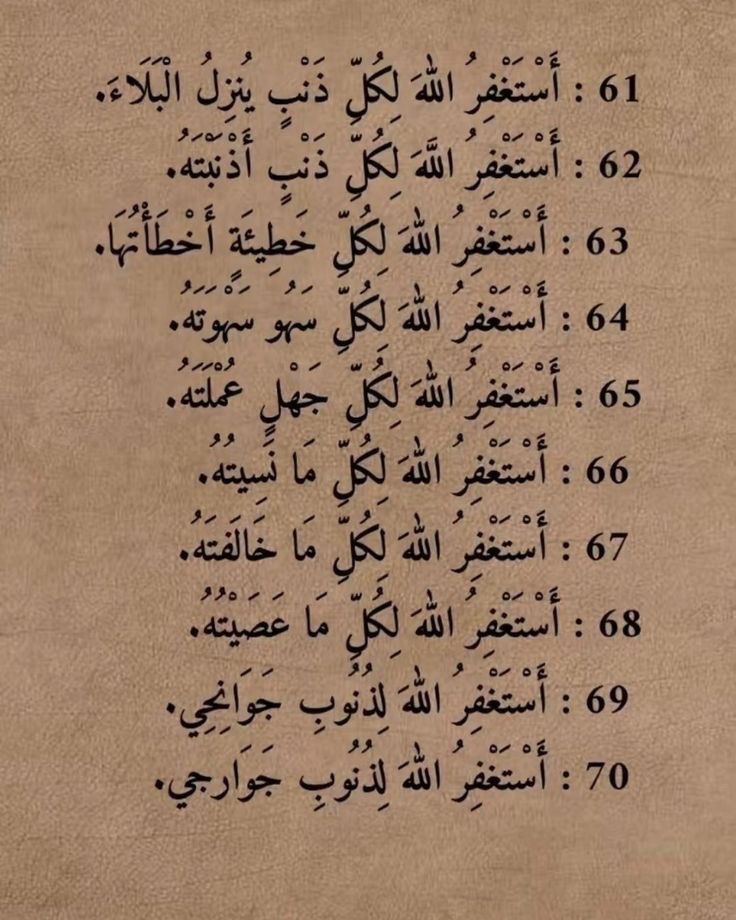 61 : أَسْتَغْفِرُ اللهَ لِكُلِّ ذَنْبٍ يُنزِلُ الْبَلَاءَ.
62 : أَسْتَغْفِرُ اللَّهَ لِكُلِّ ذَنْبٍ أَذْنَبْتَهُ.
63 : أَسْتَغْفِرُ اللهَ لِكُلِّ خَطِيئَةٍ أَخْطَأْتُهَا.
64 : أَسْتَغْفِرُ اللهَ لِكُلِّ سَهُو سَهْوَتَهُ.
65 : أَسْتَغْفِرُ اللهَ لِكُلِّ جَهْلٍ عُمْلَتَهُ.
66 : أَسْتَغْفِرُ اللهَ لِكُلِّ مَا نَسِيتُهُ.
67 : أَسْتَغْفِرُ اللهَ لِكُلِّ مَا خَالَفتَهُ.
68 : أَسْتَغْفِرُ اللهَ لِكُلِّ مَا عَصَيْتُهُ.
69 : أَسْتَغْفِرُ اللهَ لِذُنُوبِ جَوَانِحِي.
70 : أَسْتَغْفِرُ اللهَ لِذُنُوبِ جَوَارجي.